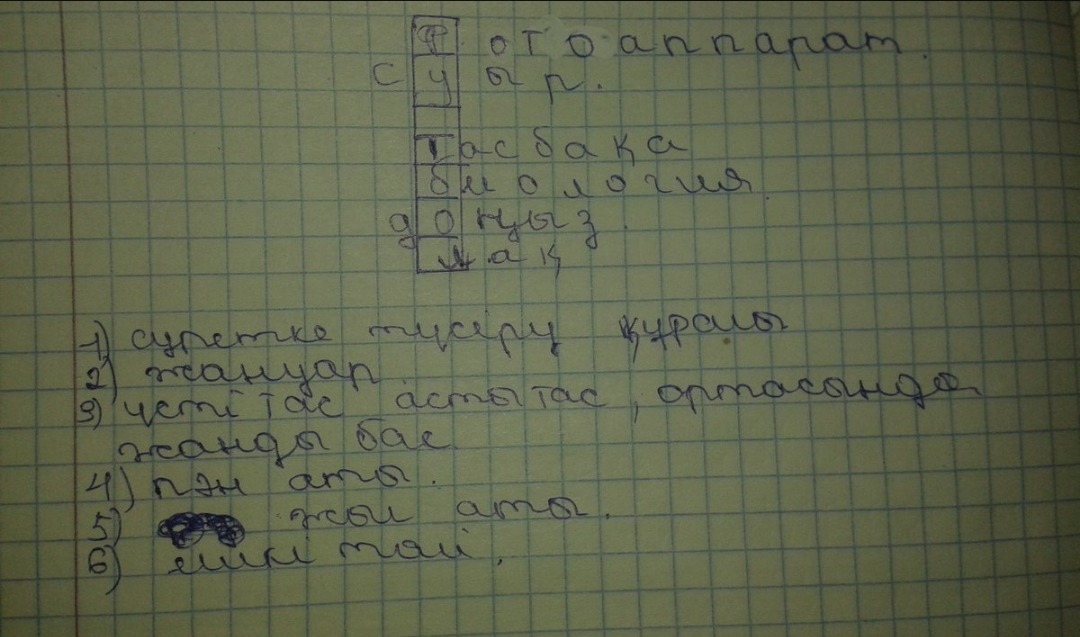 фотоаппарат.
суыр.
тасбақа
биология
доңыз.
лақ
1) суретке түсіру құралы
2) жануар.
3) үсті тас астытас, ортасында
жанды бас
4) пән аты.
5) жыл аты.
6) ешкі төлі.